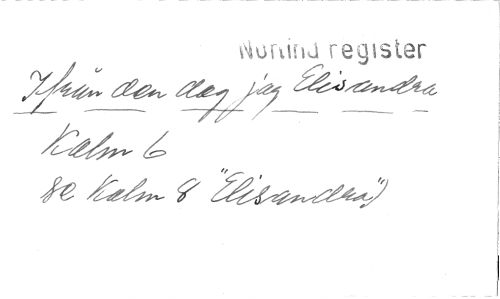 Norlind register
Ifrån den dag jag Elisandra
Kalm 6
se Kalm 8 "Elisandra")